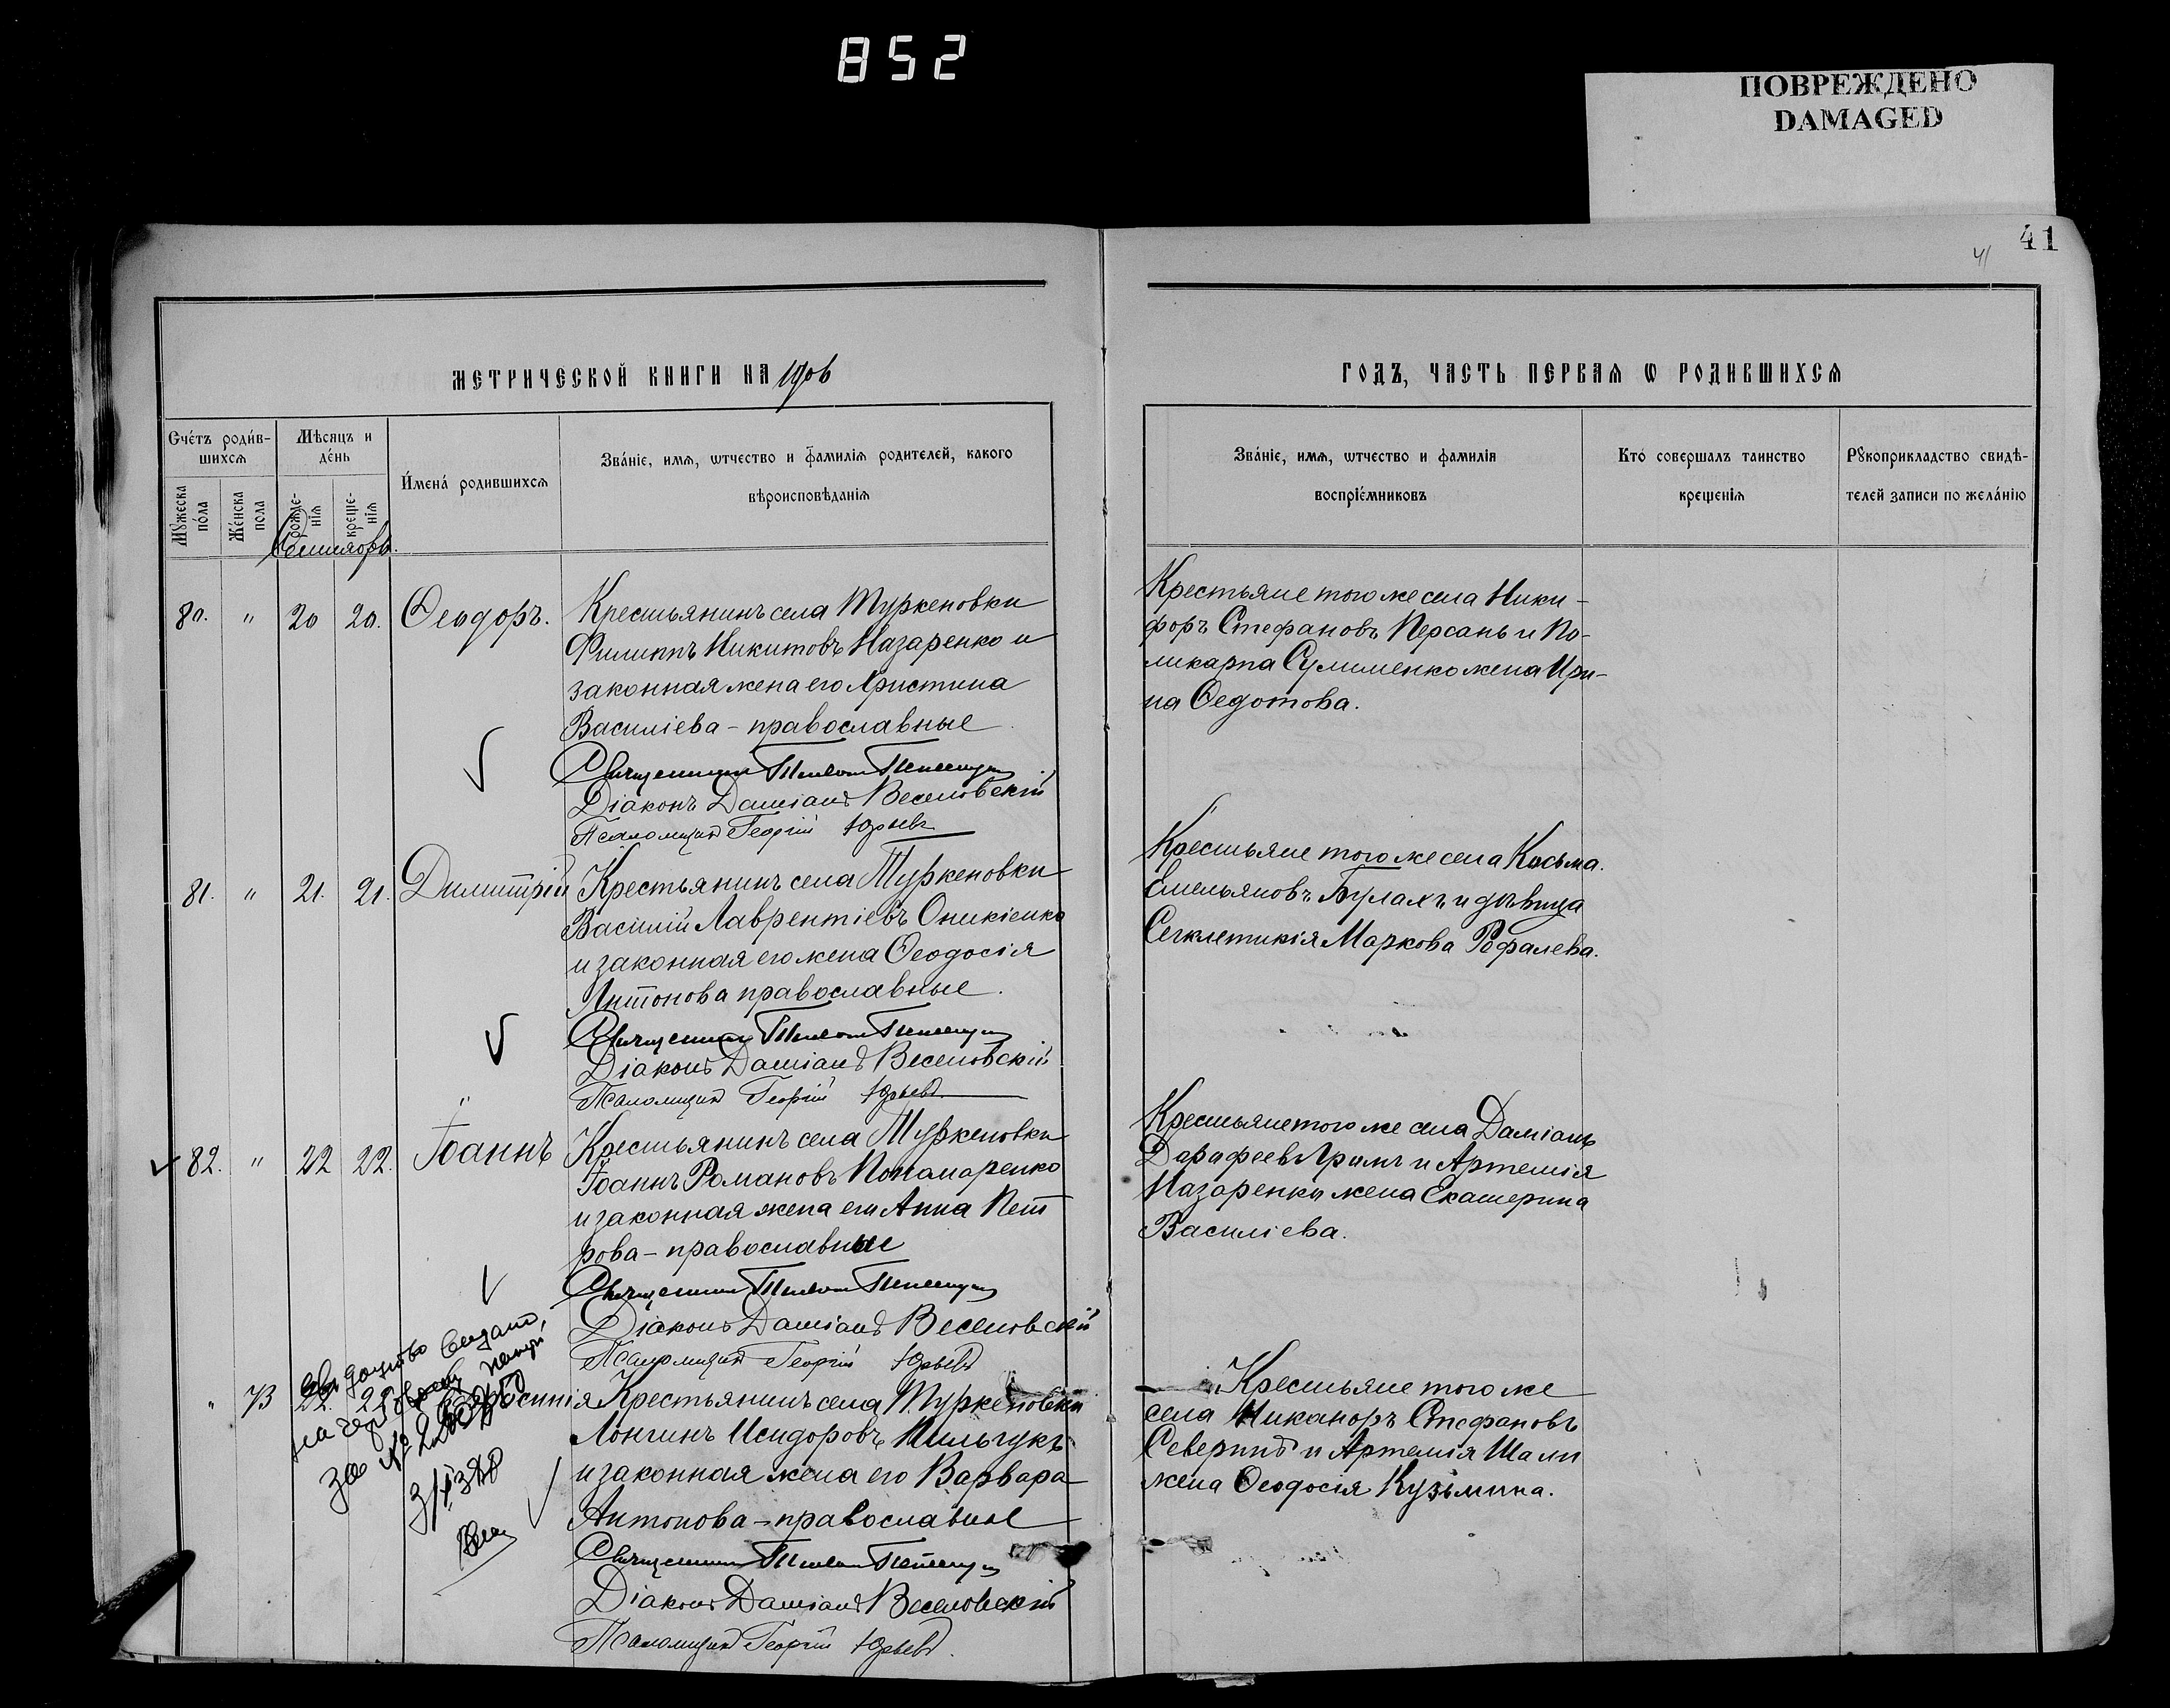 852
ПОВРЕЖДЕНО
DAMAGED
41
41
МЕТРИЧЕСКОЙ КНИГИ НА 1906
ГОДЪ, ЧАСТЬ ПЕРВАЯ Ѡ РОДИВШИХСЯ
Счéтъ роди́в-
шихсѧ
Мѣсяцъ и
дéнь
И́мена́ родившихсѧ
Зва́нїе, имѧ, ѿчество и фамилїѧ родителей, какого
вѣроисповѣданїѧ
Мꙋжеска
по́ла
Же́нска
пола
рожде-
нїѧ
креще-
нїѧ
Зва́нїе, имѧ, ѿчество и фамилїѧ
воспрїе́мниковъ
Кто́ совершалъ таинство
крещенїѧ
Рꙋкоприкладство свидѣ-
телей записи по жела́нїю
Сентябрь.
80. " 20 20. Ѳеодоръ. Крестьянинъ села Туркеновки
Филиппъ Никитовъ Назаренко и
законная жена его Христина
Василіева - православные
Священникъ
Діаконъ Даміанъ Веселовскій
Псаломщикъ Георгій Юрьевъ
Крестьяне того же села Ники-
форъ Стефановъ Персань и По-
ликарпа Сулименко жена Ири-
на Ѳедотова.
81. " 21. 21. Димитрій Крестьянинъ села Туркеновки
Василій Лаврентіевъ Оникіенко
и законная его жена Ѳеодосія
Антонова православные.
Священникъ
Діаконъ Даміанъ Веселовскій
Псаломщикъ Георгій Юрьевъ
Крестьяне того же села Косьма
Емельяновъ Булахъ и дѣвица
Сегклетикія Маркова Рофалева.
82. " 22 22. Іоаннъ Крестьянинъ села Туркеновки
Іоаннъ Романовъ Понамаренко
и законная жена его Анна Пет
рова - православные
Священникъ
Діаконъ Даміанъ Веселовскій
Псаломщикъ Георгій Юрьевъ
Крестьяне того же села Даміанъ
Дорофеевъ и Артемія
Назаренки жена Екатерина
Василіева.
" 73 22. Крестьянинъ села Туркеновки
Лонгинъ Исидоровъ Пильгукъ
и законная жена его Варвара
Антонова - православные
Священникъ
Діаконъ Даміанъ Веселовскій
Псаломщикъ Георгій Юрьевъ.
Крестьяне того же
села Никаноръ Стефановъ
Северинъ и Артемія Шали
жена Ѳеодосія Кузьмина.